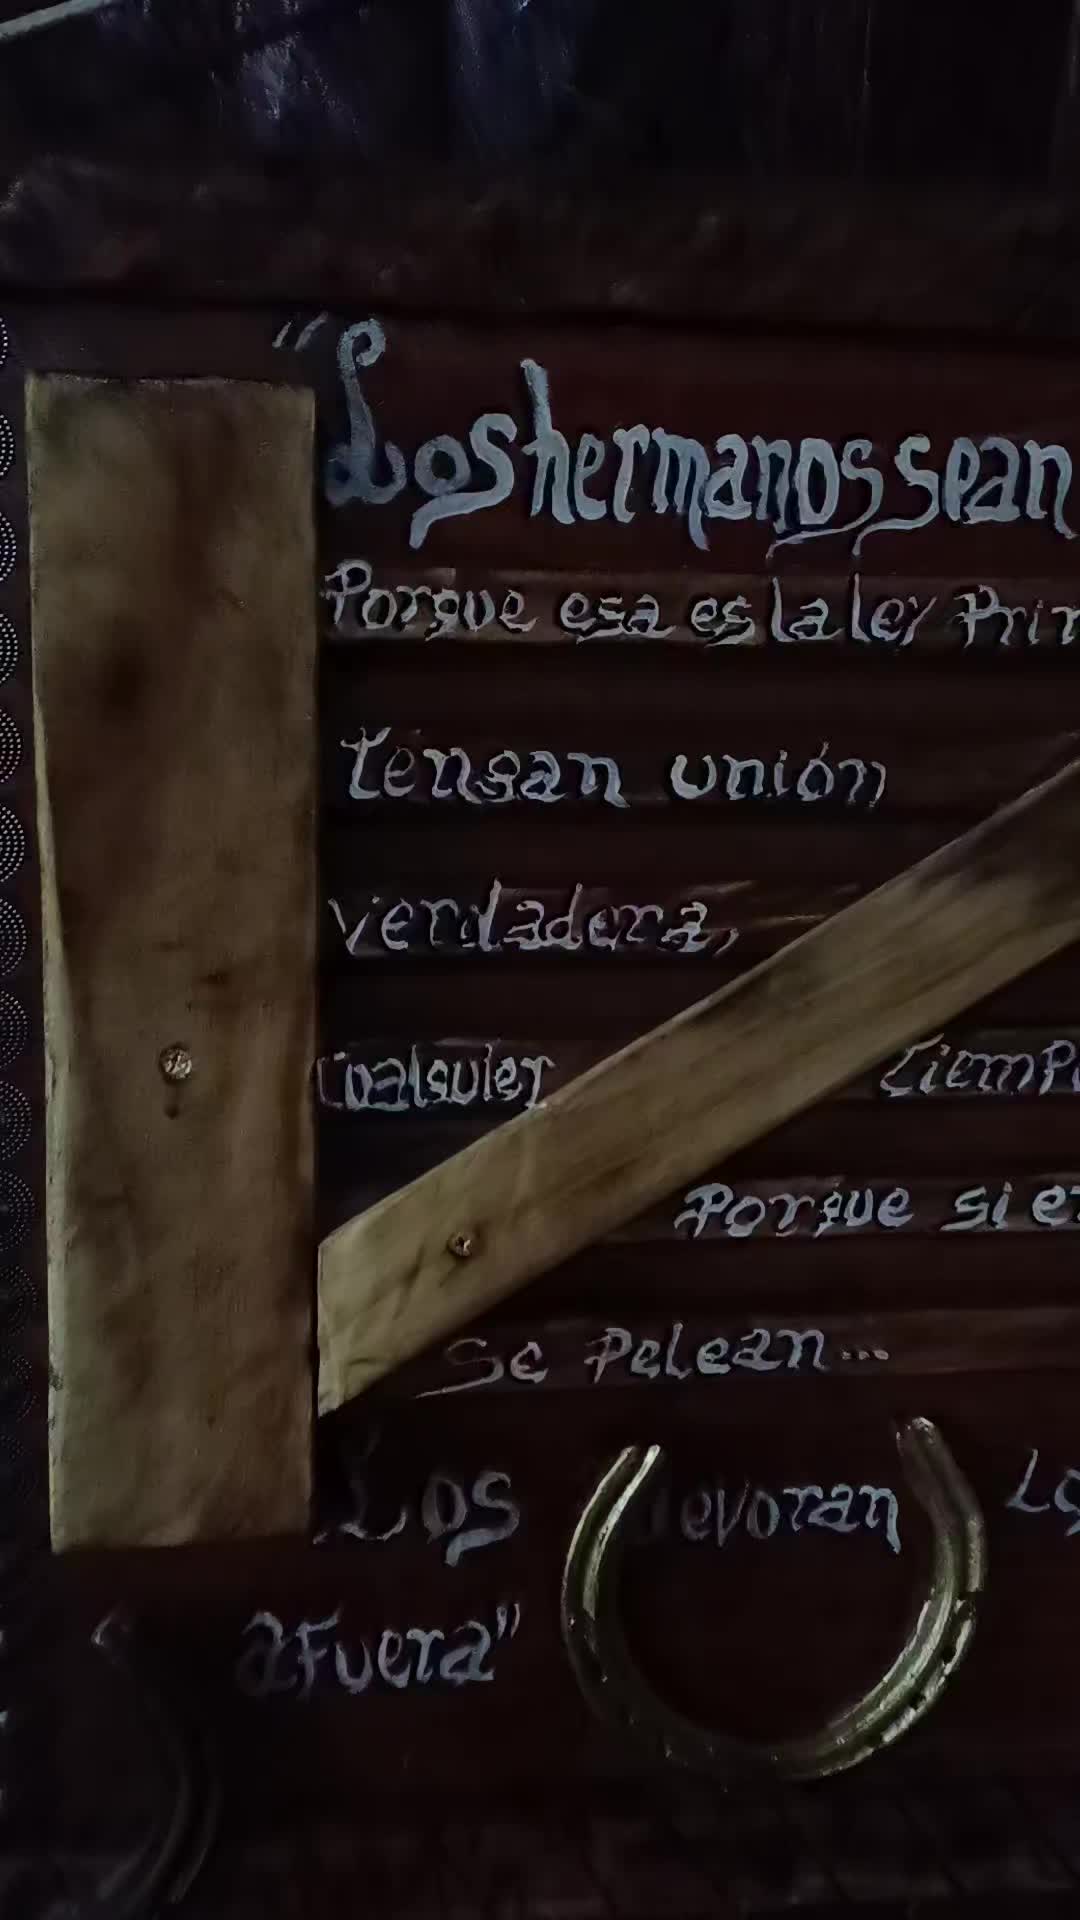 "Los hermanos sean
Porque esa es la ley Prim
tengan unión
verdadera,
Cualquier tiempo
Porque si en
se Pelean...
Los devoran Lo
aFuera"